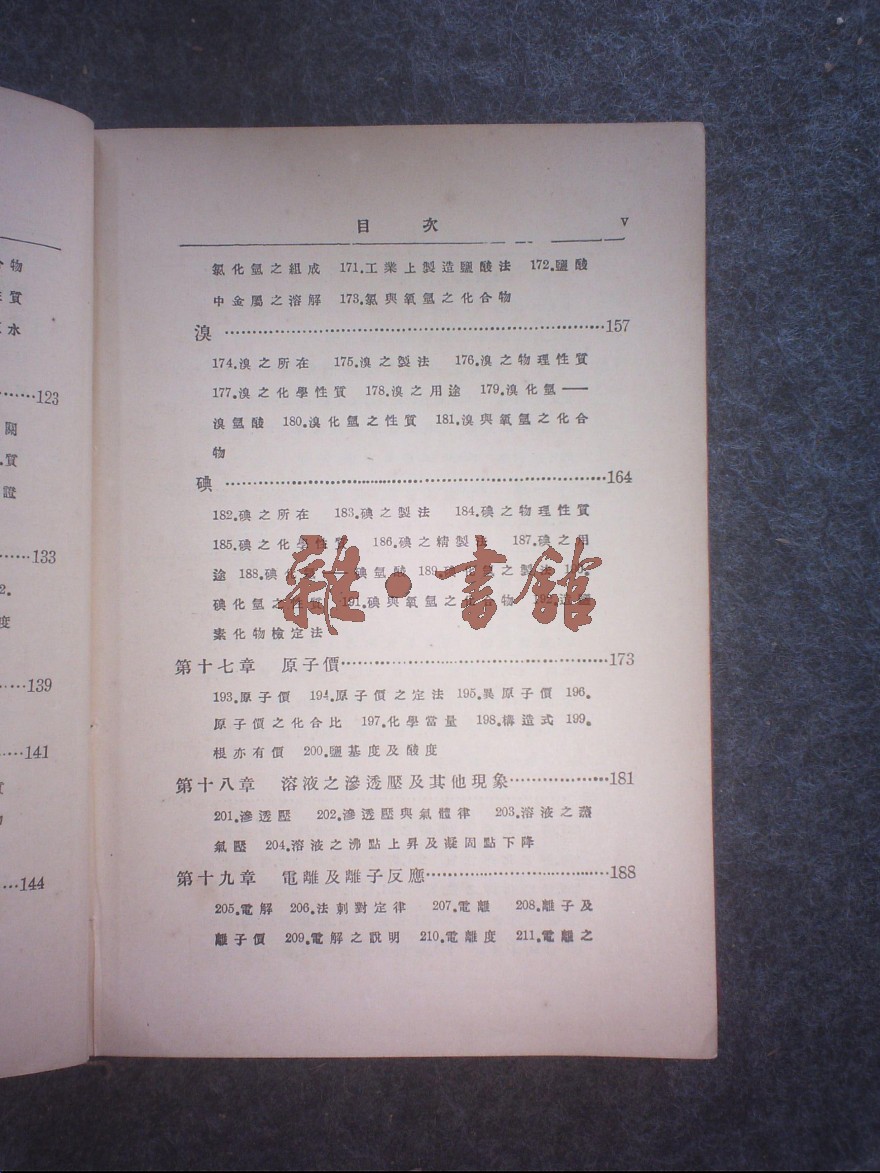 目 次 V
氯化氫之組成 171.工業上製造鹽酸法 172.鹽酸
中金屬之溶解 173.氯與氧氫之化合物
溴 157
174.溴之所在 175.溴之製法 176.溴之物理性質
177.溴之化學性質 178.溴之用途 179.溴化氫——
溴氫酸 180.溴化氫之性質 181.溴與氧氫之化合
物
碘 164
182.碘之所在 183.碘之製法 184.碘之物理性質
185.碘之化學性質 186.碘之精製法 187.碘之用
途 188.碘化氫——碘氫酸 189.碘化氫之製法 190.
碘化氫之性質 191.碘與氧氫之化合物 192.
素化物檢定法
第十七章 原子價 173
193.原子價 194.原子價之定法 195.異原子價 196.
原子價之化合比 197.化學當量 198.構造式 199.
根亦有價 200.鹽基度及酸度
第十八章 溶液之滲透壓及其他現象 181
201.滲透壓 202.滲透壓與氣體律 203.溶液之蒸
氣壓 204.溶液之沸點上昇及凝固點下降
第十九章 電離及離子反應 188
205.電解 206.法剌對定律 207.電離 208.離子及
離子價 209.電解之說明 210.電離度 211.電離之
物
質
水
123
閱
質
證
133
2.
度
139
141
144
雜·書館